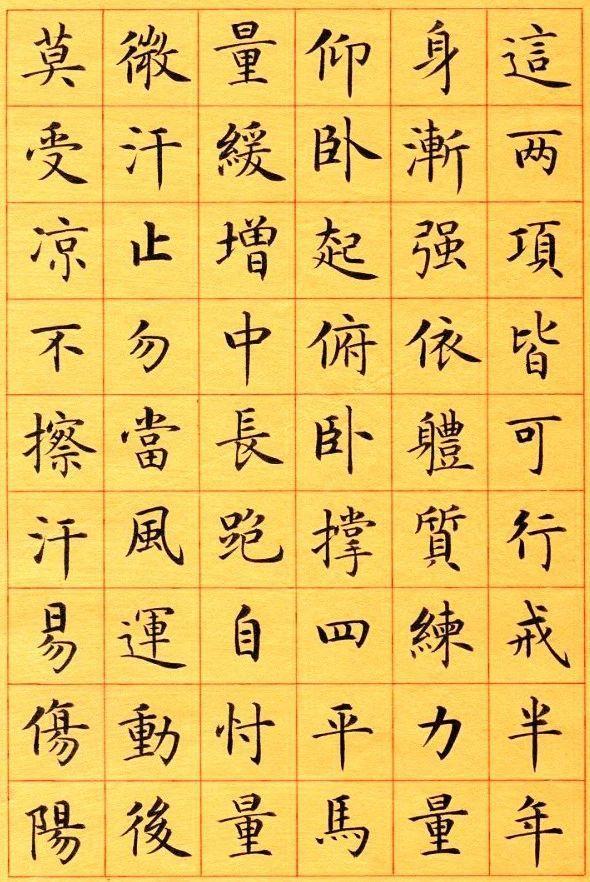 這两項皆可行戒半年
身漸强依軆質練力量
仰卧起俯卧撑四平馬
量緩增中長跑自忖量
微汗止勿當風運動後
莫受凉不擦汗易傷陽